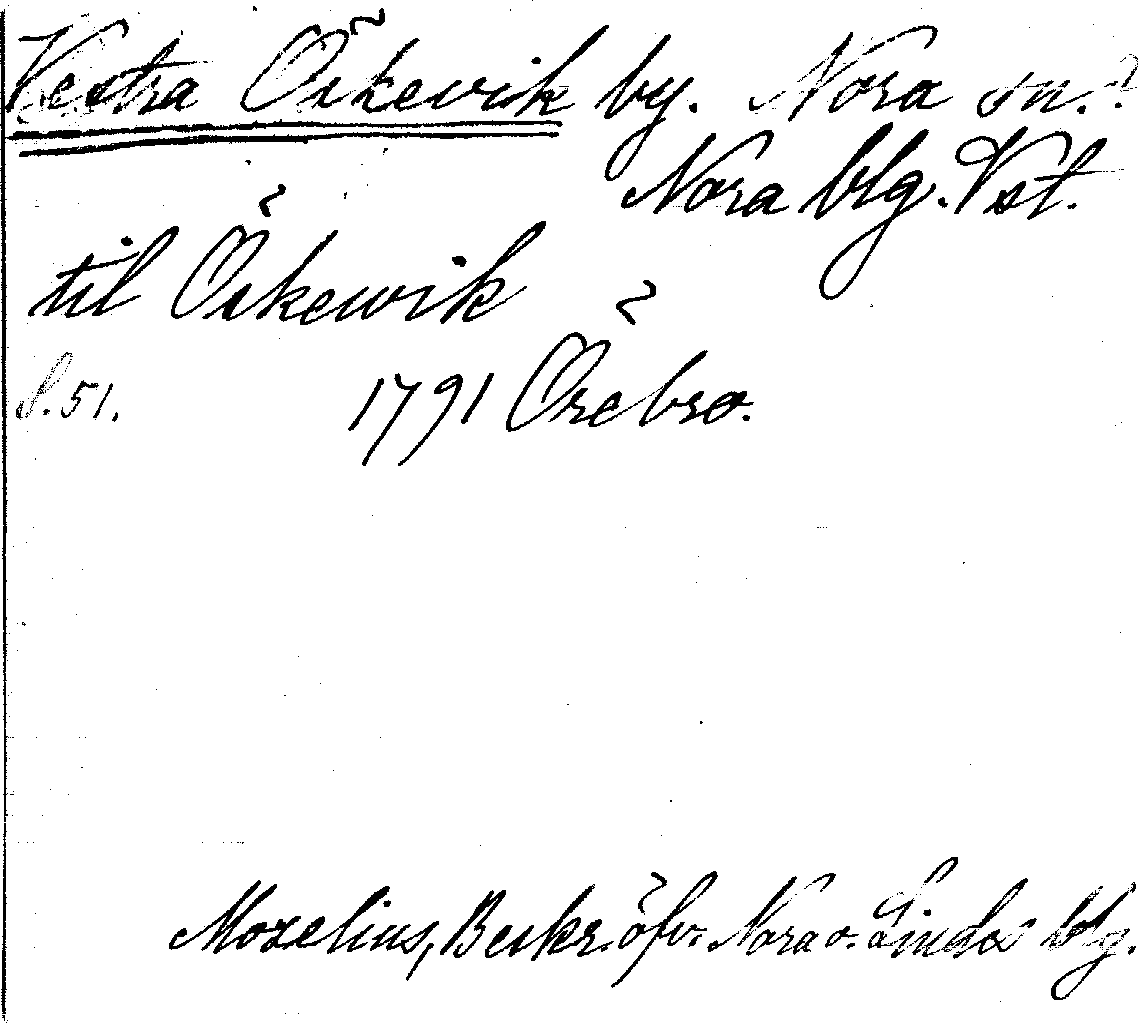 Vestra Öskevik by. Nora sn.?
Nora blg. Vst.
til Öskewik
S. 51. 1791 Örebro.
Mozelius, Beskr. öfv. Nora o. Linde blg.